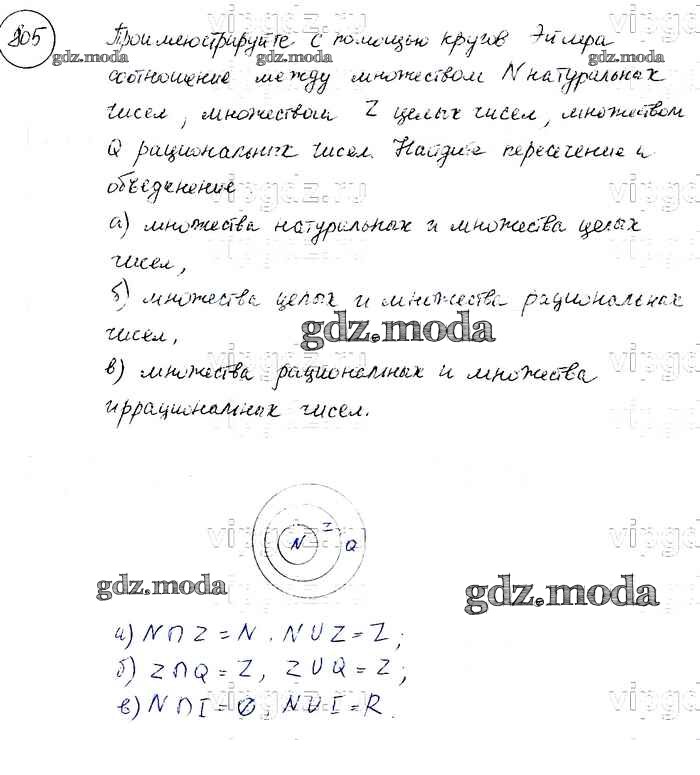 805
Проиллюстрируйте с помощью кругов Эйлера
соотношение между множеством N натуральных
чисел, множеством Z целых чисел, множеством
Q рациональных чисел. Найдите пересечение и
объеденение
а) множества натуральных и множества целых
чисел,
б) множества целых и множества рациональных
чисел,
в) множества рациональных и множества
иррациональных чисел.
N Z Q
а) N∩Z = N. N∪Z = Z;
б) Z∩Q = Z, Z∪Q = Z;
в) N∩I = ∅, N∪I = R.
gdz.moda
gdz.moda
gdz.moda
gdz.moda
gdz.moda
vipgdz.ru
vipgdz.ru
vipgdz.ru
vipgdz.ru